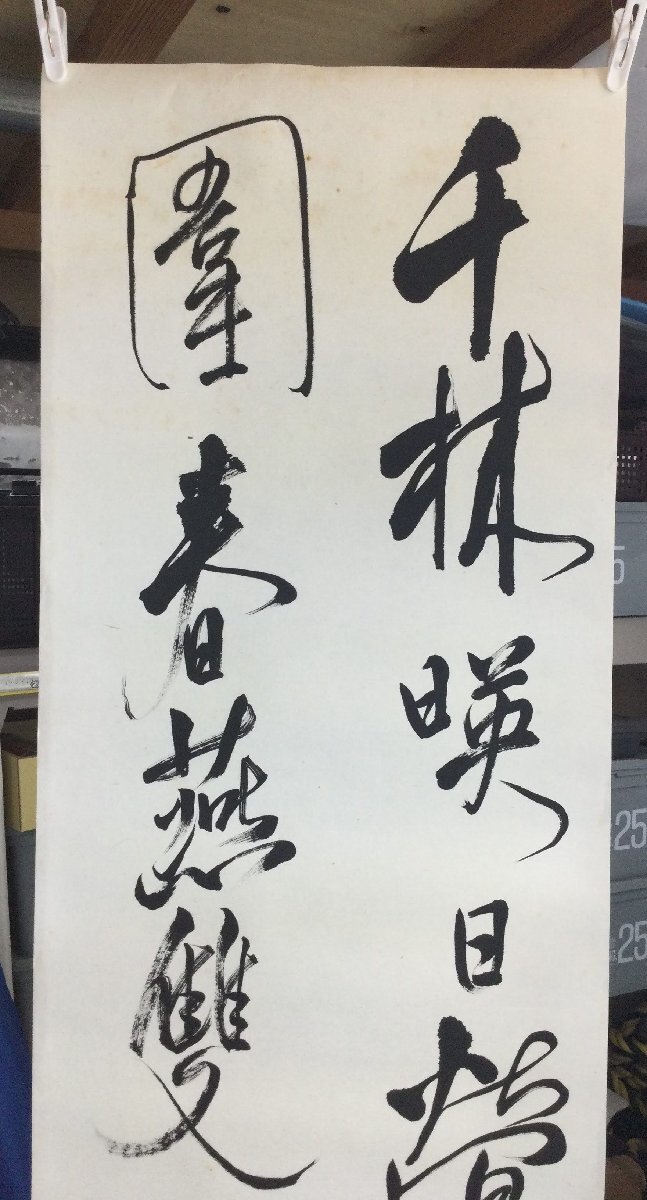 千林暎日鶯
圍春燕雙
5
25
25